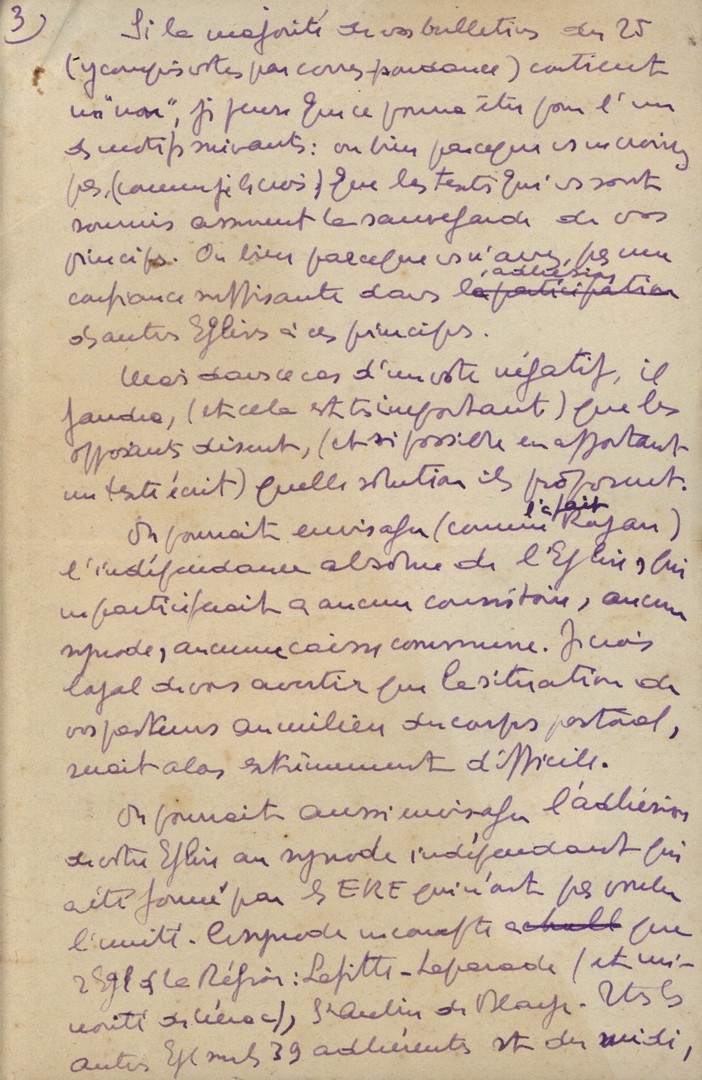 3)
Si la majorité de vos bulletins du 25
(y compris votes par correspondance) contient
un "non", je pense que ce pourra être pour l'un
des motifs suivants : ou bien parce que vs ne croirez
pas, (comme je le crois,) que les textes qui vs sont
soumis assurent la sauvegarde de vos
principes. Ou bien parce que vs n'avez pas une
l'adhésion
confiance suffisante dans la participation
d'autres Eglises à ces principes.
Mais dans ce cas d'un vote négatif, il
faudra, (et cela est très important) que les
opposants disent, (et si possible en apportant
un texte écrit) quelle solution ils proposent.
l'a fait
On pourrait envisager (comme Royan)
l'indépendance absolue de l'Eglise, qui
ne participerait à aucun consistoire, aucun
synode, aucune caisse commune. Je crois
loyal de vous avertir que la situation de
vos pasteurs au milieu du corps pastoral,
serait alors extrêmement difficile.
On pourrait aussi envisager l'adhésion
de votre Eglise au synode indépendant qui
a été formé par les ERE qui n'ont pas voulu
l'unité. Ce synode ne compte que
2 Egl de la Région : Lafitte - Laparade (et mi-
norité de Nérac), St Aubin de Blaye. Tts les
autres Egl sur les 39 adhérentes st du midi,